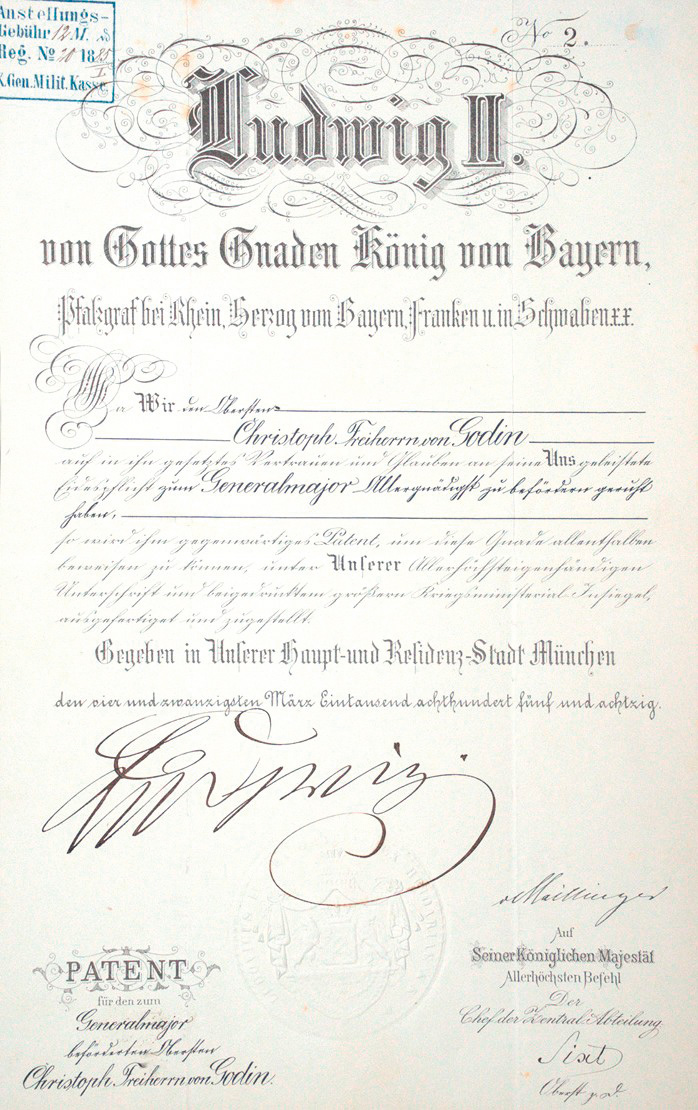 Anstellungs-
Gebühr 12 M.
Reg. No 20 1885
K.Gen.Milit.Kasse.
No 2.
Ludwig II.
von Gottes Gnaden König von Bayern,
Pfalzgraf bei Rhein, Herzog von Bayern, Franken u. in Schwaben x.x.
Da Wir den Obersten
Christoph Freiherrn von Godin
auf in ihn gesetztes Vertrauen und Glauben an seine Uns geleistete
Eidespflicht zum Generalmajor Allergnädigst zu befördern geruht
haben,
so wird ihm gegenwärtiges Patent, um diese Gnade allenthalben
beweisen zu können, unter Unserer Allerhöchsteigenhändigen
Unterschrift und beigedrucktem größern Kriegsministerial-Insiegel,
ausgefertiget und zugestellt.
Gegeben in Unserer Haupt- und Residenz-Stadt München
den vier und zwanzigsten März Eintausend achthundert fünf und achtzig.
Ludwig.
v Maillinger
Auf
Seiner Königlichen Majestät
Allerhöchsten Befehl
Der
Chef der Zentral-Abteilung
Sixt
Oberst
PATENT
für den zum
Generalmajor
beförderten Obersten
Christoph Freiherrn von Godin.